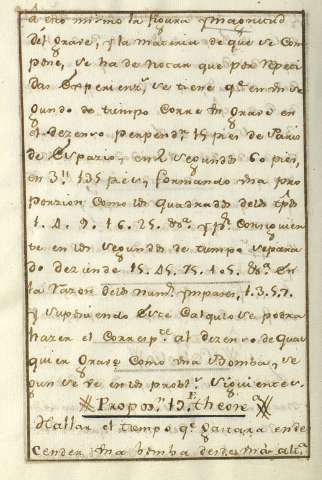 a esto mismo la figura y magnitud
del Grave, y la materia de que se com
pone, se ha de notar que por repeti
das Experienz.s se tiene q.e en un se
gundo de tiempo Corre un Grave en
el dezenso perpend.r 15 pies de Paris
de Espazio, en 2 segundos 60 pies,
en 3." 135 pies, formando una pro
porzion Como los quadrados de los tp̃os
1. 4. 9. 16. 25. &.a y p.r Consiguien
te en los segundos de tiempo separa
do deziende 15. 45. 75. 105. &.a en
la razon de los num.s impares, 1. 3. 5. 7.
y supuiendo este Calculo se podra
hazer el Corresp.te al dezenso de qual
quier Grave Como una Bomba, se
gun se ve en los probl.s siguientes.
Propos.n 13.a theore.a
Hallar el tiempo q.e gastara en de
cender una bomba desde su alt.a